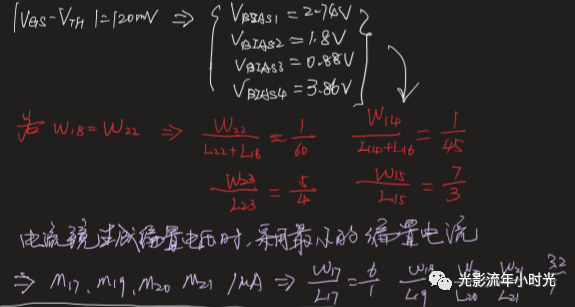 |VGS-VTH|=120mV ⇒ { VBIAS1=2.74V
VBIAS2=1.8V
VBIAS3=0.88V
VBIAS4=3.86V }
若 W18=W22 ⇒ W22/(L22+L18)=1/60 W14/(L14+L16)=1/45
W23/L23=5/4 W15/L15=7/3
电流镜生成偏置电压时,采用最小的偏置电流
⇒ M17, M19, M20 M21 1μA ⇒ W17/L17=6/1 W19/L19 L20 L21 3.2
光影流年小时光